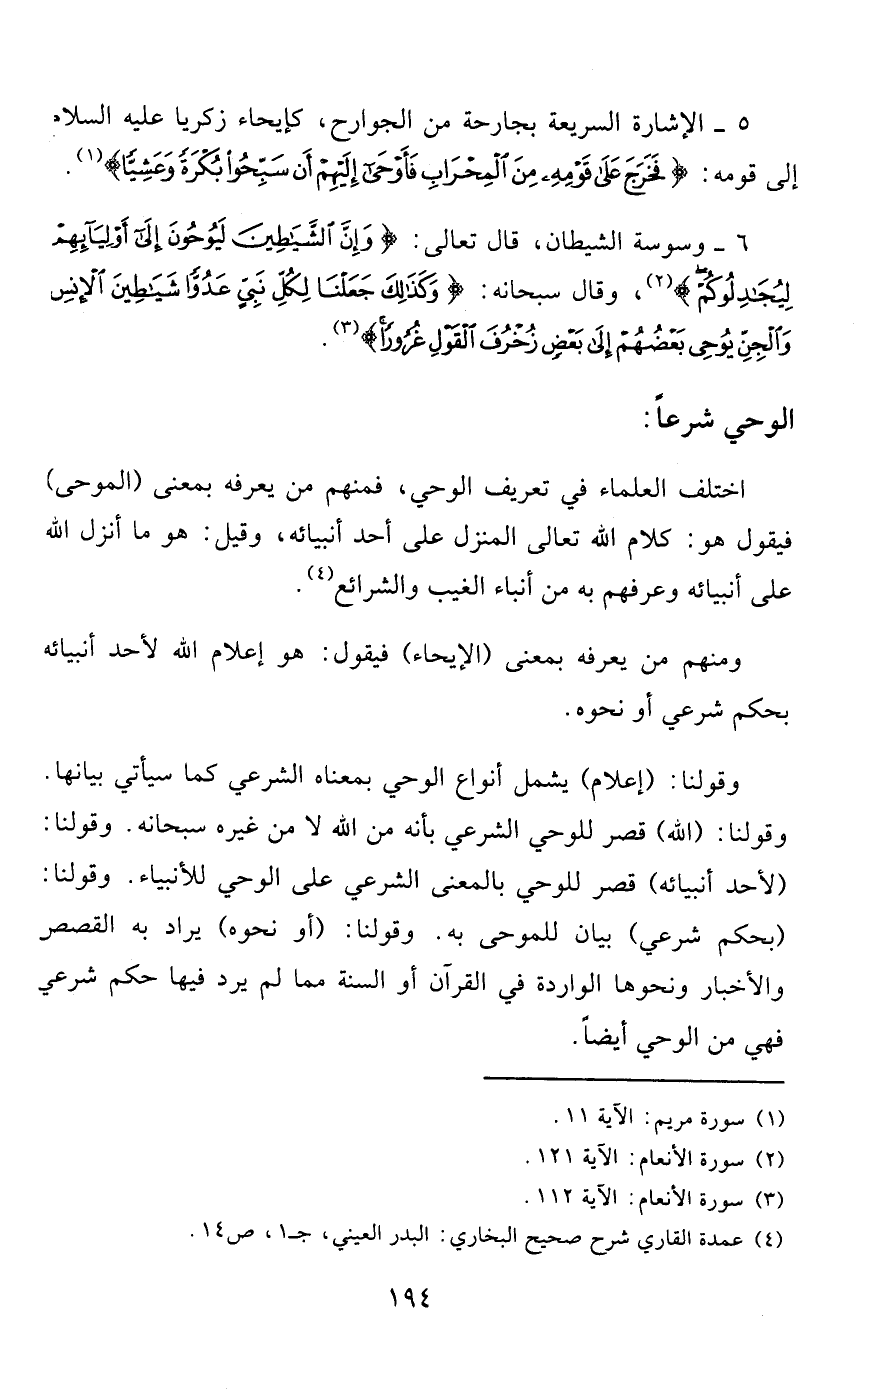 ٥ ـ الإشارة السريعة بجارحة من الجوارح، كإيحاء زكريا عليه السلام
إلى قومه: ﴿فَخَرَجَ عَلَىٰ قَوْمِهِۦ مِنَ ٱلْمِحْرَابِ فَأَوْحَىٰٓ إِلَيْهِمْ أَن سَبِّحُوا۟ بُكْرَةً وَعَشِيًّا﴾(١).
٦ ـ وسوسة الشيطان، قال تعالى: ﴿وَإِنَّ ٱلشَّيَٰطِينَ لَيُوحُونَ إِلَىٰٓ أَوْلِيَآئِهِمْ
لِيُجَٰدِلُوكُمْ ۖ﴾(٢)، وقال سبحانه: ﴿وَكَذَٰلِكَ جَعَلْنَا لِكُلِّ نَبِىٍّ عَدُوًّا شَيَٰطِينَ ٱلْإِنسِ
وَٱلْجِنِّ يُوحِى بَعْضُهُمْ إِلَىٰ بَعْضٍ زُخْرُفَ ٱلْقَوْلِ غُرُورًا ۚ﴾(٣).
الوحي شرعاً:
اختلف العلماء في تعريف الوحي، فمنهم من يعرفه بمعنى (الموحى)
فيقول هو: كلام الله تعالى المنزل على أحد أنبيائه، وقيل: هو ما أنزل الله
على أنبيائه وعرفهم به من أنباء الغيب والشرائع(٤).
ومنهم من يعرفه بمعنى (الإيحاء) فيقول: هو إعلام الله لأحد أنبيائه
بحكم شرعي أو نحوه.
وقولنا: (إعلام) يشمل أنواع الوحي بمعناه الشرعي كما سيأتي بيانها.
وقولنا: (الله) قصر للوحي الشرعي بأنه من الله لا من غيره سبحانه. وقولنا:
(لأحد أنبيائه) قصر للوحي بالمعنى الشرعي على الوحي للأنبياء. وقولنا:
(بحكم شرعي) بيان للموحى به. وقولنا: (أو نحوه) يراد به القصص
والأخبار ونحوها الواردة في القرآن أو السنة مما لم يرد فيها حكم شرعي
فهي من الوحي أيضاً.
(١) سورة مريم: الآية ١١.
(٢) سورة الأنعام: الآية ١٢١.
(٣) سورة الأنعام: الآية ١١٢.
(٤) عمدة القاري شرح صحيح البخاري: البدر العيني، جـ١، ص١٤.
١٩٤